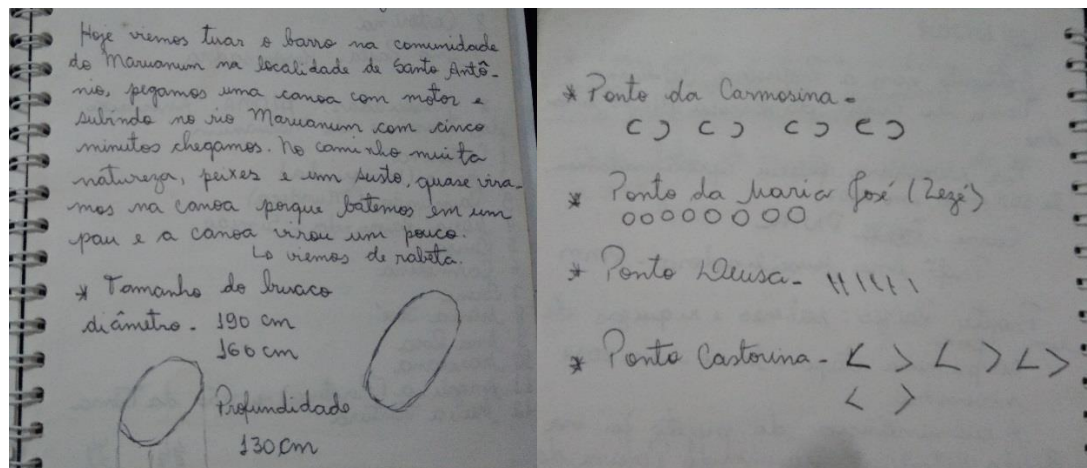 Hoje viemos tirar o barro na comunidade
do Maruanum na localidade de Santo Antô-
nio, pegamos uma canoa com motor e
subindo no rio Maruanum com cinco
minutos chegamos. No caminho muita
natureza, peixes e um susto, quase vira-
mos na canoa porque batemos em um
pau e a canoa virou um pouco.
Lo viemos de rabeta.
* Tamanho do buraco
diâmetro - 190 cm
160 cm
Profundidade
130cm
* Ponto da Carmosina -
* Ponto da Maria José (Zezé)
* Ponto Deusa -
* Ponto Castorina - < > < > < >
< >